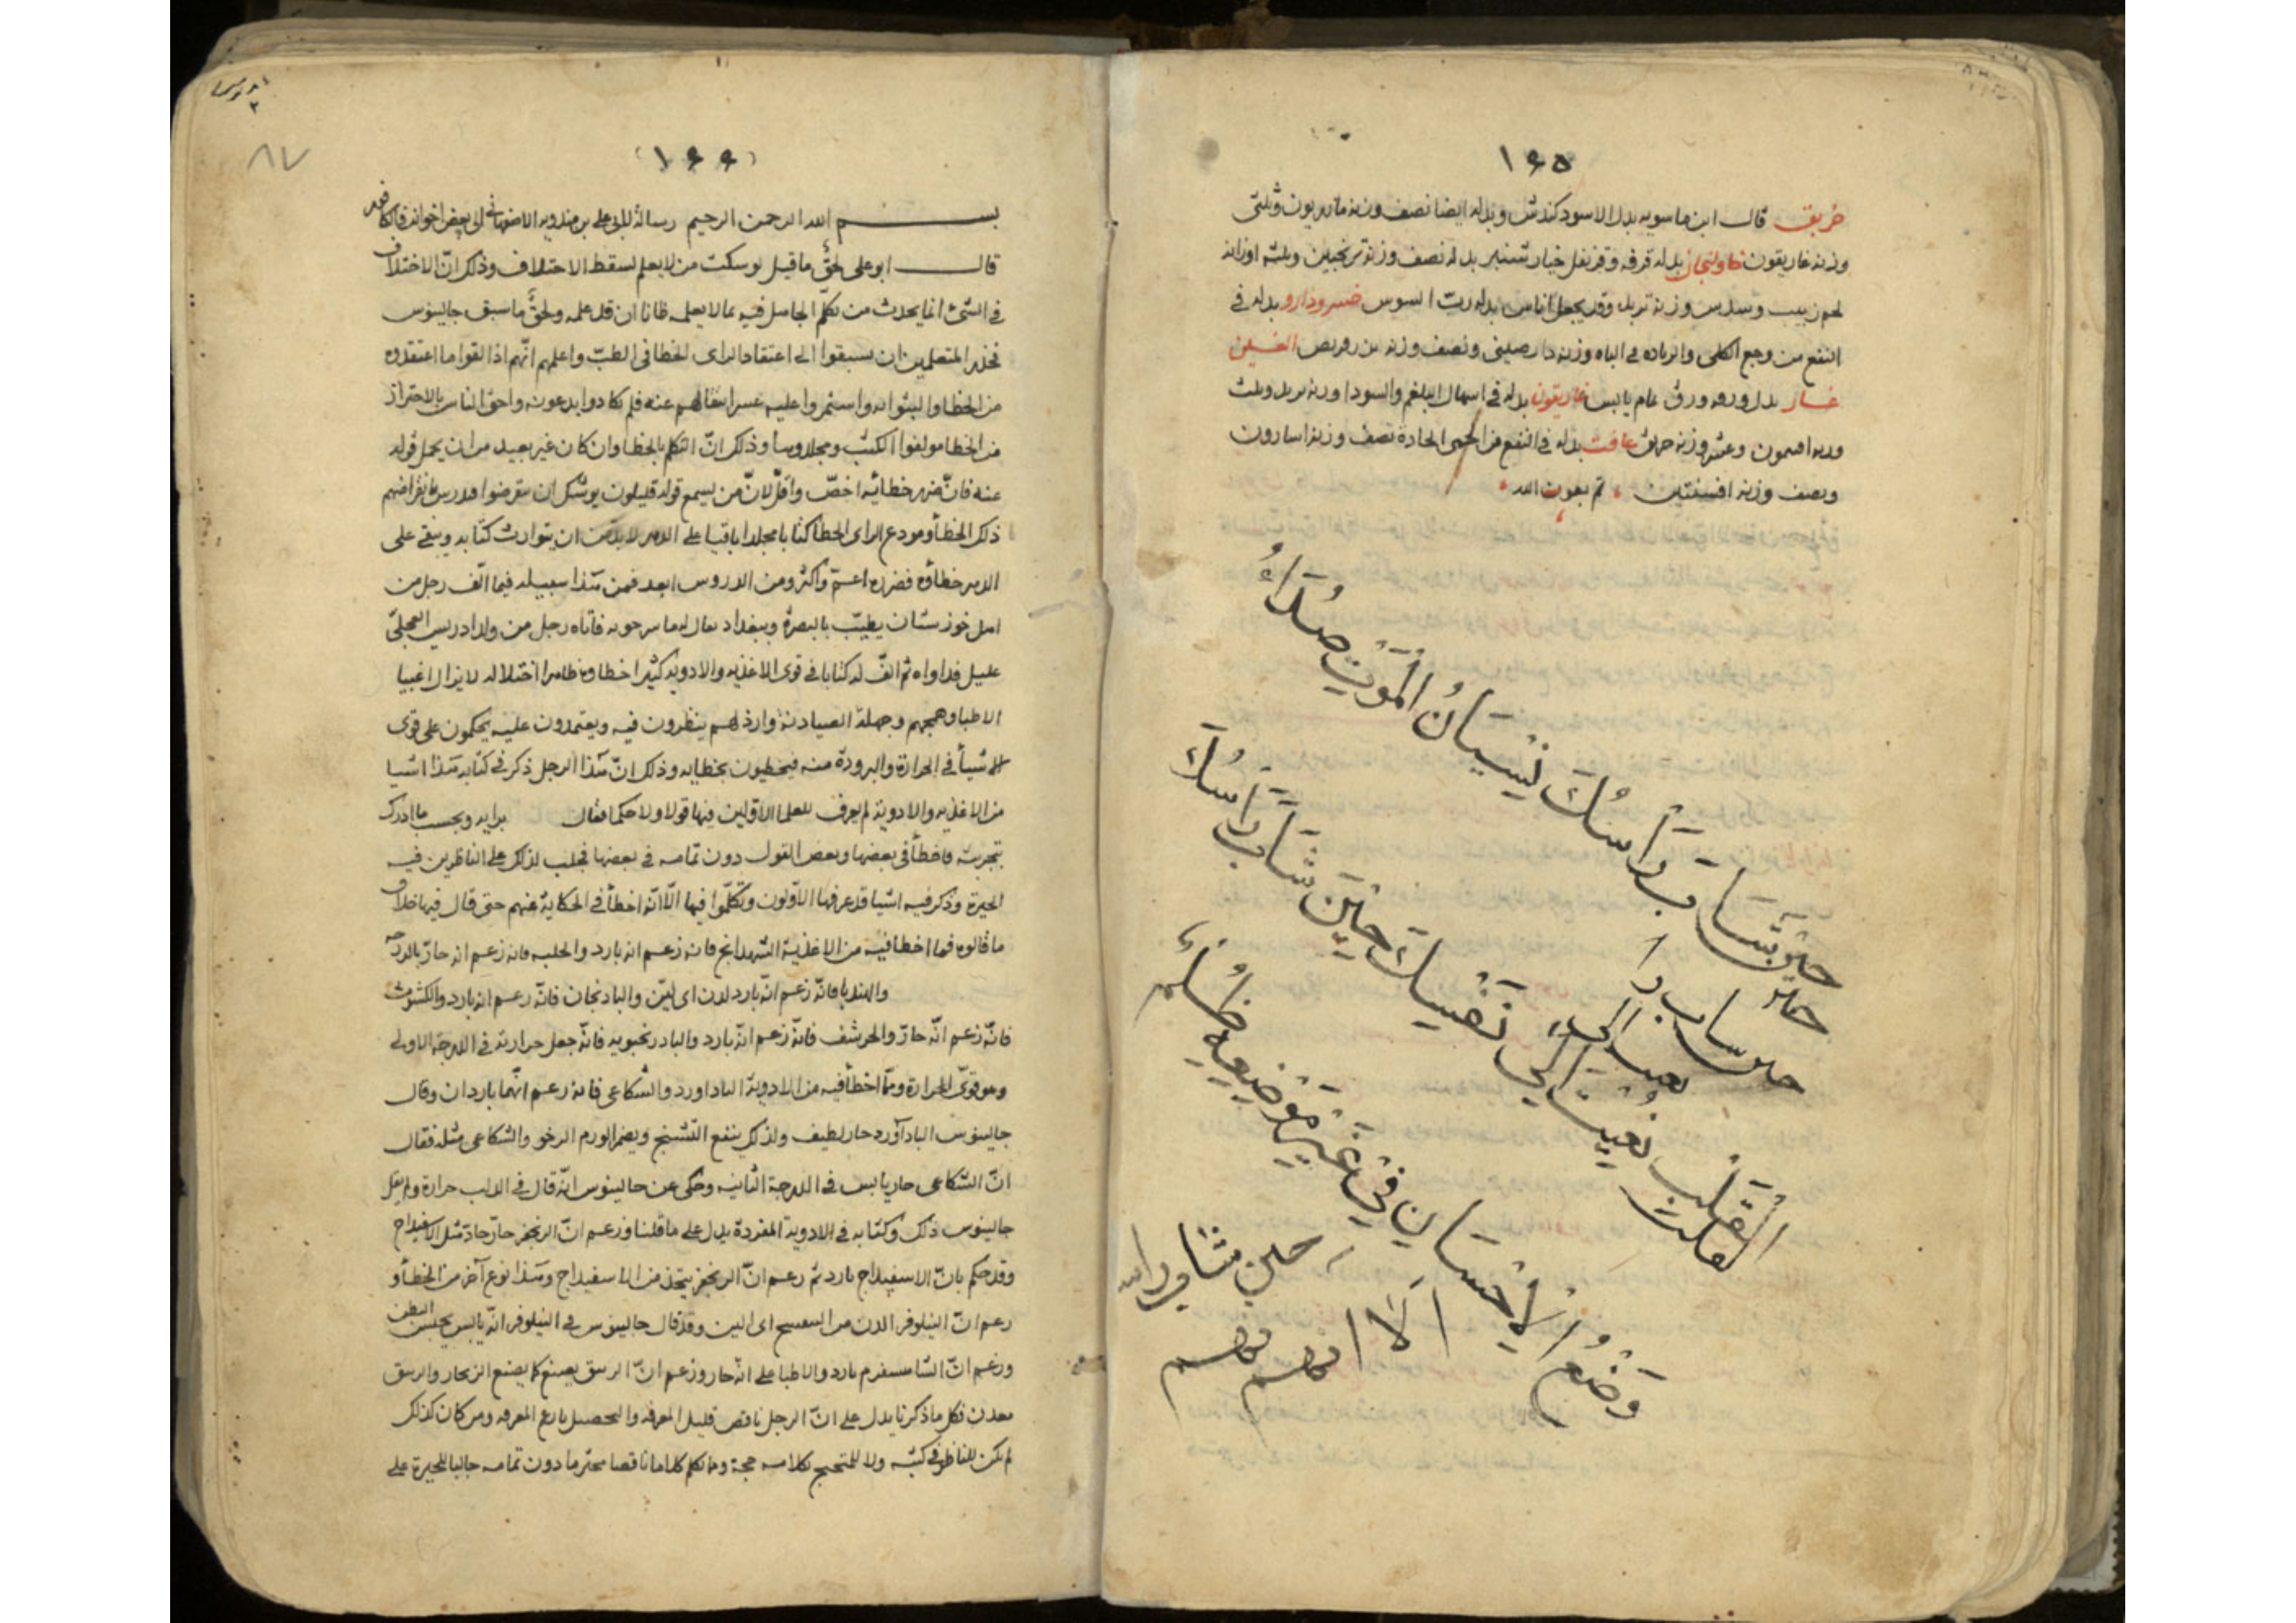 ١٦٥
خربق قال ابن ماسويه بدل الاسود كندش وبدله ايضا نصف وزنه مازريون وثلثى
وزنه غاريقون خاولنجان بدله قرفه وقرنفل خيار شنبر بدله نصف وزنه ترنجبين وثلثه اوزانه
لحم زبيب وسدس وزنه تربد وقد يجعل اناس بدله رب السوس خسرودارو بدله فى
النفع من وجع الكلى والزياده فى الباه وزنه دارصينى ونصف وزنه الغين
غار بدل ورقه ورق نمام يابس غاريقون بدله فى اسهال البلغم والسودا وزنه تربد وثلث
وزنه افتيمون وعشر وزنه خربق غافت بدله فى النفع من الحمى الحادة نصف وزنه اسارون
ونصف وزنه افسنتين تم بعون الله
نسيان الموت صداء
القلب
حين شاب راسك
نفسك حين شاب راسك
حين
القلب يعيش الى
وضع الاحسان في غير موضعه ظلم
حين شاب راسك
الا انهم
١٦٦
٨٧
بسم الله الرحمن الرحيم رسالة لابى على بن مندويه الاصفهانى الى بعض اخوانه
قال ابو على لحق ما قيل لو سكت من لا يعلم لسقط الاختلاف وذلك ان الاختلاف
فى الشئ انما يحدث من تكلم الجاهل فيه بما لا يعلمه ظانا ان قد علمه ولحق ما سبق جالينوس
فحذر المتعلمين ان يسبقوا الى اعتقاد الراى الخطا فى الطب واعلمهم انهم اذا القوا ما اعتقدوه
من الخطا والبثوا به واستمروا عليه عسر انتقالهم عنه فلم يكادوا يدعونه واحق الناس بالاحتراز
من الخطا مولفوا الكتب ومجلدوها وذلك ان التكلم بالخطا وان كان غير بعيد من ان يحمل قوله
عنه فان ضرر خطائه اخص واقل لان من يسمع قوله قليلون يوشك ان ينقرضوا ويدرس بانقراضهم
ذكر الخطا ومودع الراى الخطا كتابا مجلدا باقيا على الدهر لا بد من ان يتوارث كتابه ويبقى على
الدهر خطاؤه فضرره اعم واكثر ومن الدروس ابعد فمن هذا سبيله فيما الف رجل من
اهل خوزستان يطبب بالبصرة وببغداد يقال له ماسرجويه فاتاه رجل من ولد ادريس العجلى
عليل فداواه ثم الف له كتابا فى قوى الاغذيه والادويه كثيرا خطاؤه ظاهرا اختلاله لا يزال اغبيا
الاطبا وهمجهم وجملة الصيادنة وارذلهم ينظرون فيه ويعتمدون عليه يحكمون على قوى
الاشيأ فى الحرارة والبرودة منه فيخطيون بخطايه وذلك ان هذا الرجل ذكر فى كتابه هذا اشيا
من الاغذيه والادوية لم يعرف للعلما الاولين فيها قولا ولا حكما فقال برايه وبحسب ما ادرك
بتجربته فاخطأ فى بعضها وبعض القول دون تمامه فى بعضها فجلب لذلك على الناظرين فيه
الحيرة وذكر فيه اشيا قد عرفها الاولون وتكلموا فيها الا انه اخطأ فى الحكاية عنهم حتى قال فيها خلاف
ما قالوه فما اخطا فيه من الاغذية الشهدانج فانه زعم انه بارد والحلبه فانه زعم انه حار بالدرجه
والهندبا فانه زعم انه بارد لدن اى لين والبادنجان فانه زعم انه بارد والكشوث
فانه زعم انه حار والحرشف فانه زعم انه بارد والبادرنجبويه فانه جعل حرارته فى الدرجة الاولى
وهو قوى الحرارة ومما اخطأ فيه من الادوية الباداورد والشكاعى فانه زعم انهما باردان وقال
جالينوس الباداورد حار لطيف ولذلك ينفع التشنج ويضمر الورم الرخو والشكاعى مثله فقال
ان الشكاعى حار يابس فى الدرجة الثانيه وحكى عن جالينوس انه قال فى الدلب حرارة ولم يقل
جالينوس ذلك وكتابه فى الادوية المفردة يدل على ما قلنا وزعم ان الزنجفر حار حاد مثل الاسفيداج
وقد حكم بان الاسفيداج بارد ثم زعم ان الزنجفر يتخذ من الاسفيداج وهذا نوع آخر من الخطأ و
زعم ان النيلوفر الدن من البنفسج اى الين وقد قال جالينوس فى النيلوفر انه يابس يحبس البطن
وزعم ان الشاهسفرم بارد والاطبا على انه حار وزعم ان الزيبق يصنع كما يصنع الزنجار والزيبق
معدن فكل ما ذكرنا يدل على ان الرجل ناقص قليل المعرفه والتحصيل بارع المعرفه ومن كان كذلك
لم يكن للناظر فى كتبه ولا للمتحجج بكلامه حجة وما تكلم كلاما ناقصا مخترما دون تمامه جالبا للحيرة على